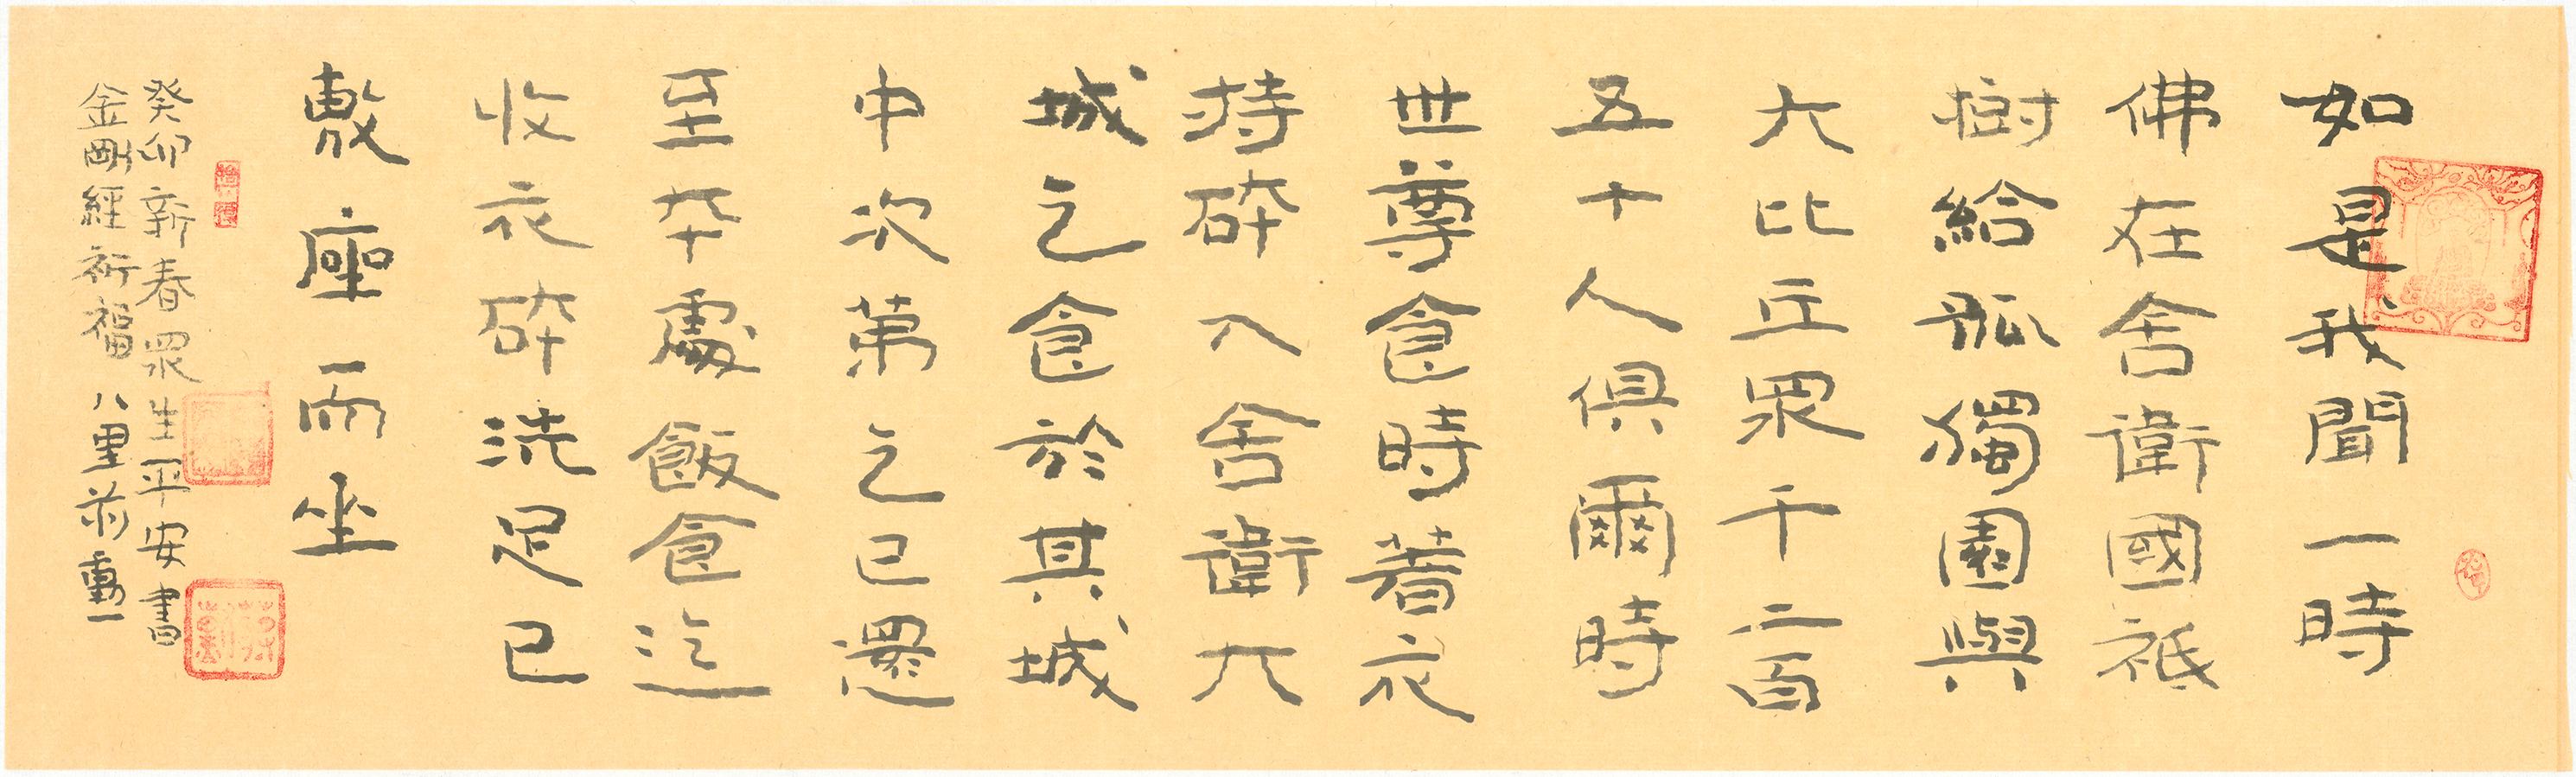 如是我聞一時
佛在舍衛國祇
樹給孤獨園與
大比丘眾千二百
五十人俱爾時
世尊食時著衣
持砵入舍衛大
城乞食於其城
中次第乞已還
至本處飯食迄
收衣砵洗足已
敷座而坐
癸卯新春眾生平安書
金剛經祈福 八里